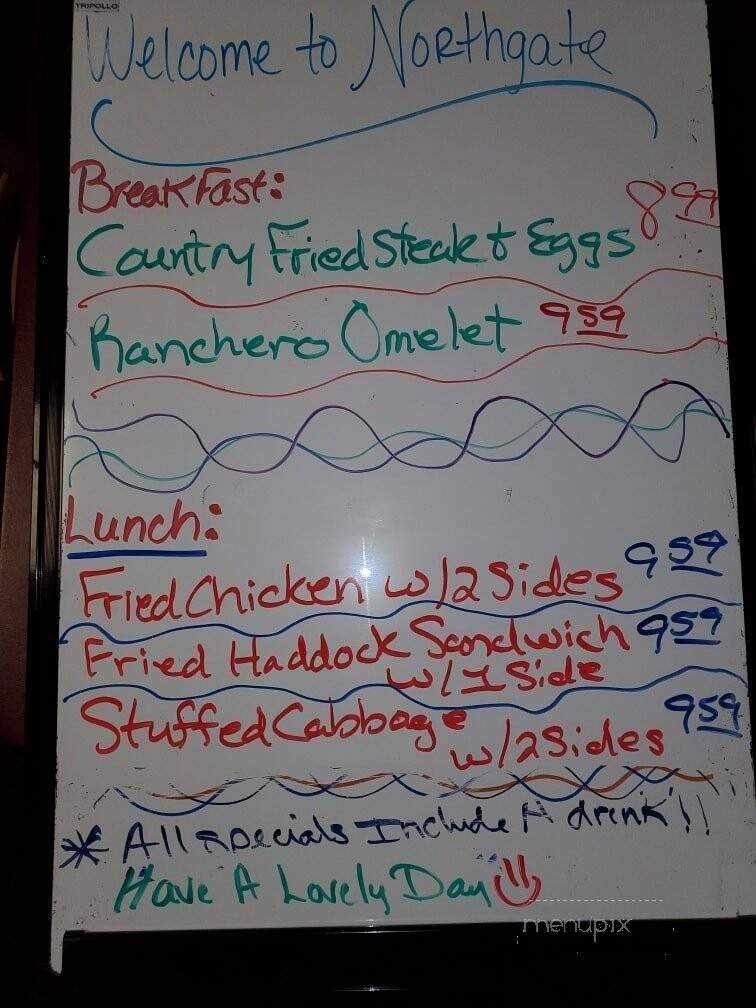 TRIPOLLO
Welcome to Northgate
BreakFast:
Country Fried Steak & Eggs 8 99
Ranchero Omelet 9 59
Lunch:
Fried Chicken w/2 Sides 9 59
Fried Haddock Sandwich 9 59
w/1 Side
Stuffed Cabbage 9 59
w/2 Sides
* All specials Include A drink!!
Have A Lovely Day
menupix